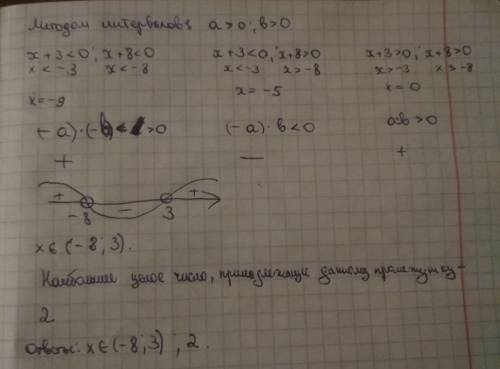 Методом интервалов: a>0; b>0
x+3<0; x+8<0   x+3<0; x+8>0   x+3>0; x+8>0
x<-3   x<-8   x<-3   x>-8   x>-3   x>-8
x=-9   x=-5   x=0
(-a)·(-b) >0   (-a)·b<0   a·b>0
+   —   +
+   -   +
-8   3
x∈(-8;3).
Наибольшее целое число, принадлежащее данному промежутку-
2
Ответ: x∈(-8;3) ; 2.